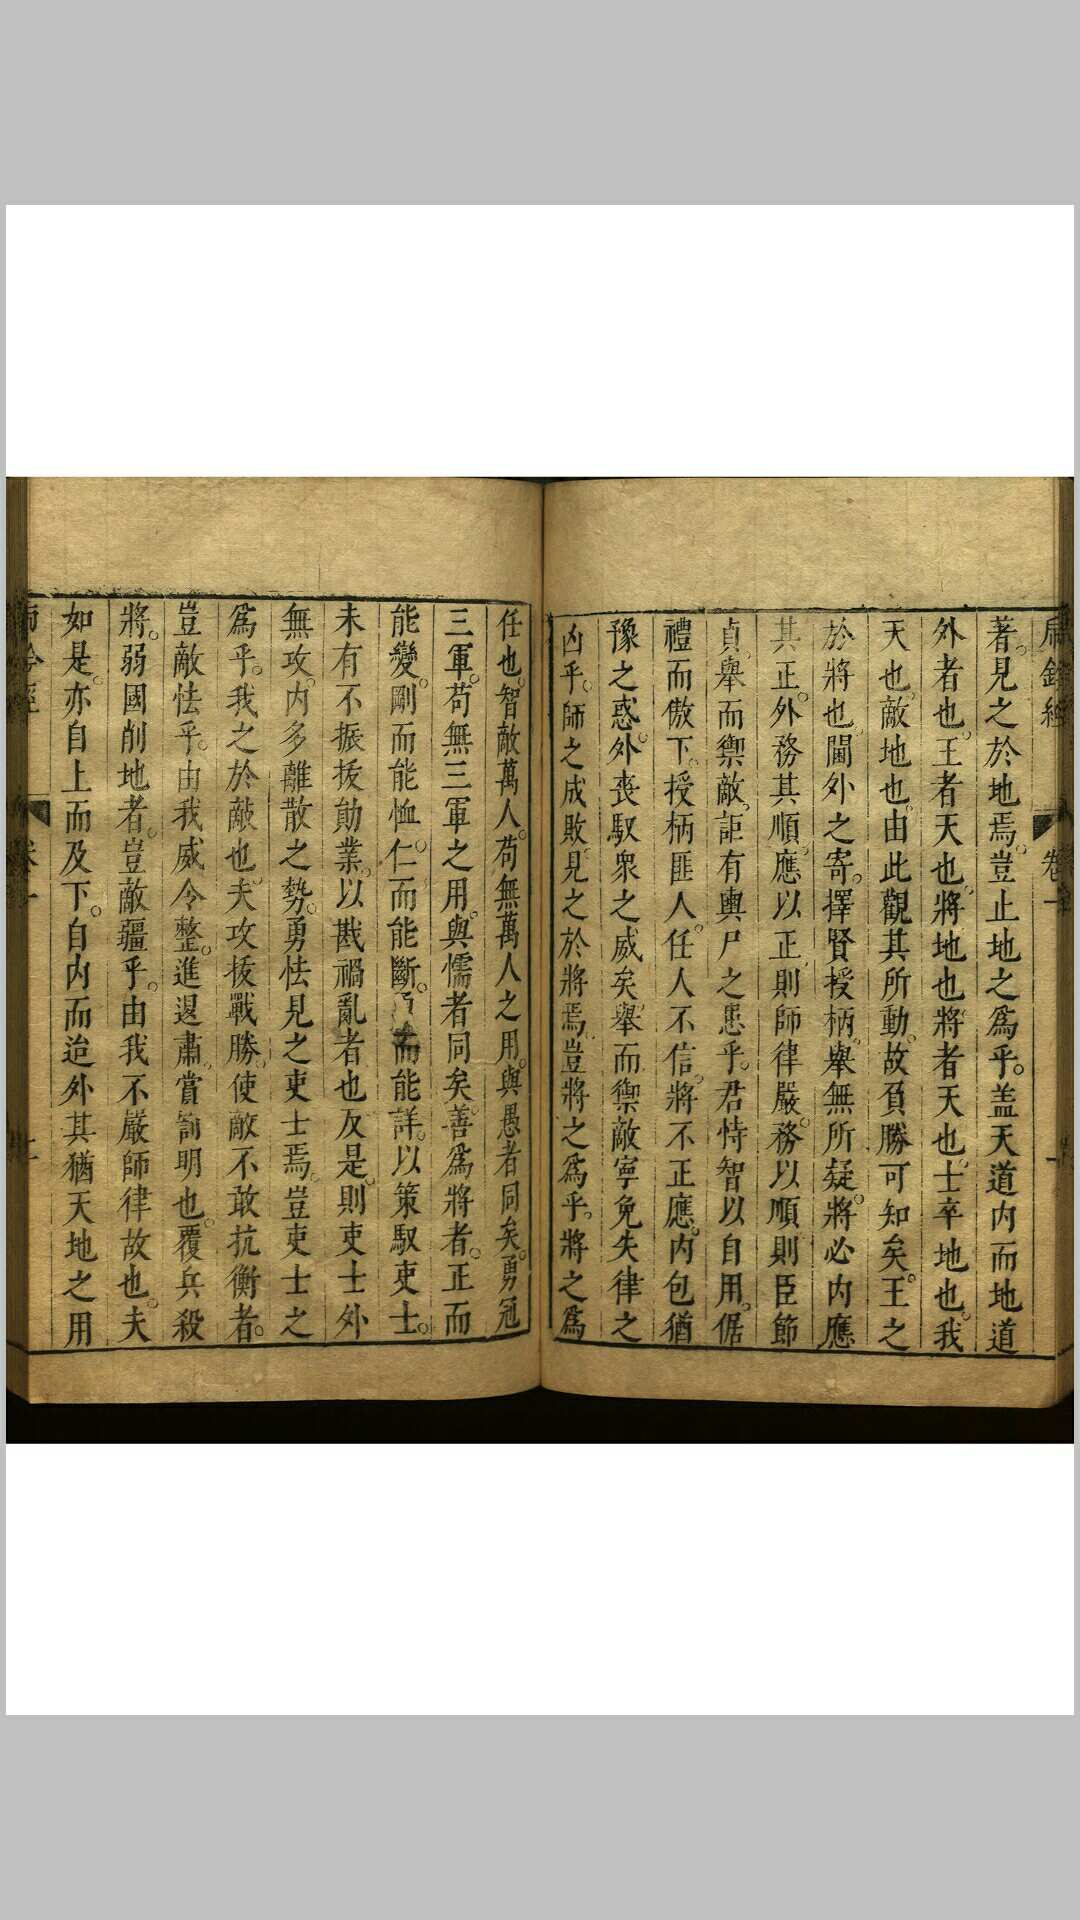 著。見之於地焉。豈止地之爲乎。蓋天道内而地道
外者也。王者天也。將地也。將者天也。士卒地也。我
天也。敵地也。由此觀其所動。故負勝可知矣。王之
於將也。閫外之寄。擇賢授柄。舉無所疑。將必内應
其正。外務其順。應以正則師律嚴。務以順則臣節
貞。舉而禦敵。詎有輿尸之患乎。君恃智以自用。倨
禮而傲下。授柄匪人。任人不信。將不正應。内包猶
豫之惑。外喪馭衆之威矣。舉而禦敵。寧免失律之
凶乎。師之成敗。見之於將焉。豈將之爲乎。將之爲
任也。智敵萬人。苟無萬人之用。與愚者同矣。勇冠
三軍。苟無三軍之用。與懦者同矣。善爲將者。正而
能變。剛而能恤。仁而能斷。勇而能詳。以策馭吏士。
未有不振拔勛業。以戡禍亂者也。反是。則吏士外
無攻。内多離散之勢。勇怯見之吏士焉。豈吏士之
爲乎。我之於敵也。夫攻拔戰勝。使敵不敢抗衡者。
豈敵怯乎。由我威令整。進退肅。賞罰明也。覆兵殺
將。弱國削地者。豈敵疆乎。由我不嚴師律故也。夫
如是。亦自上而及下。自内而迨外。其猶天地之用
卷一